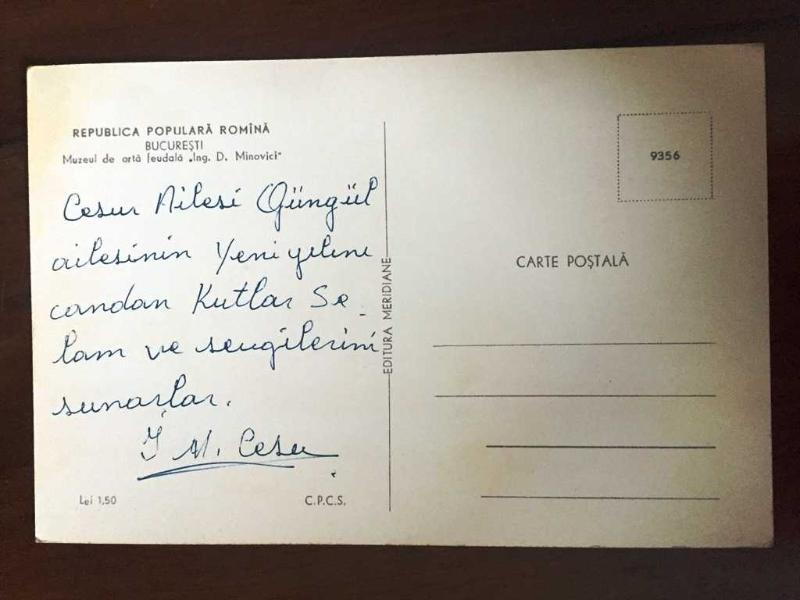 REPUBLICA POPULARĂ ROMÎNĂ
BUCUREȘTI
Muzeul de artă feudală „Ing. D. Minovici"
Cesur Ailesi Güngül
ailesinin Yeni yılını
candan Kutlar Se_
lam ve sevgilerini
sunarlar.
M. Cesur
Lei 1,50
C.P.C.S.
EDITURA MERIDIANE
9356
CARTE POȘTALĂ